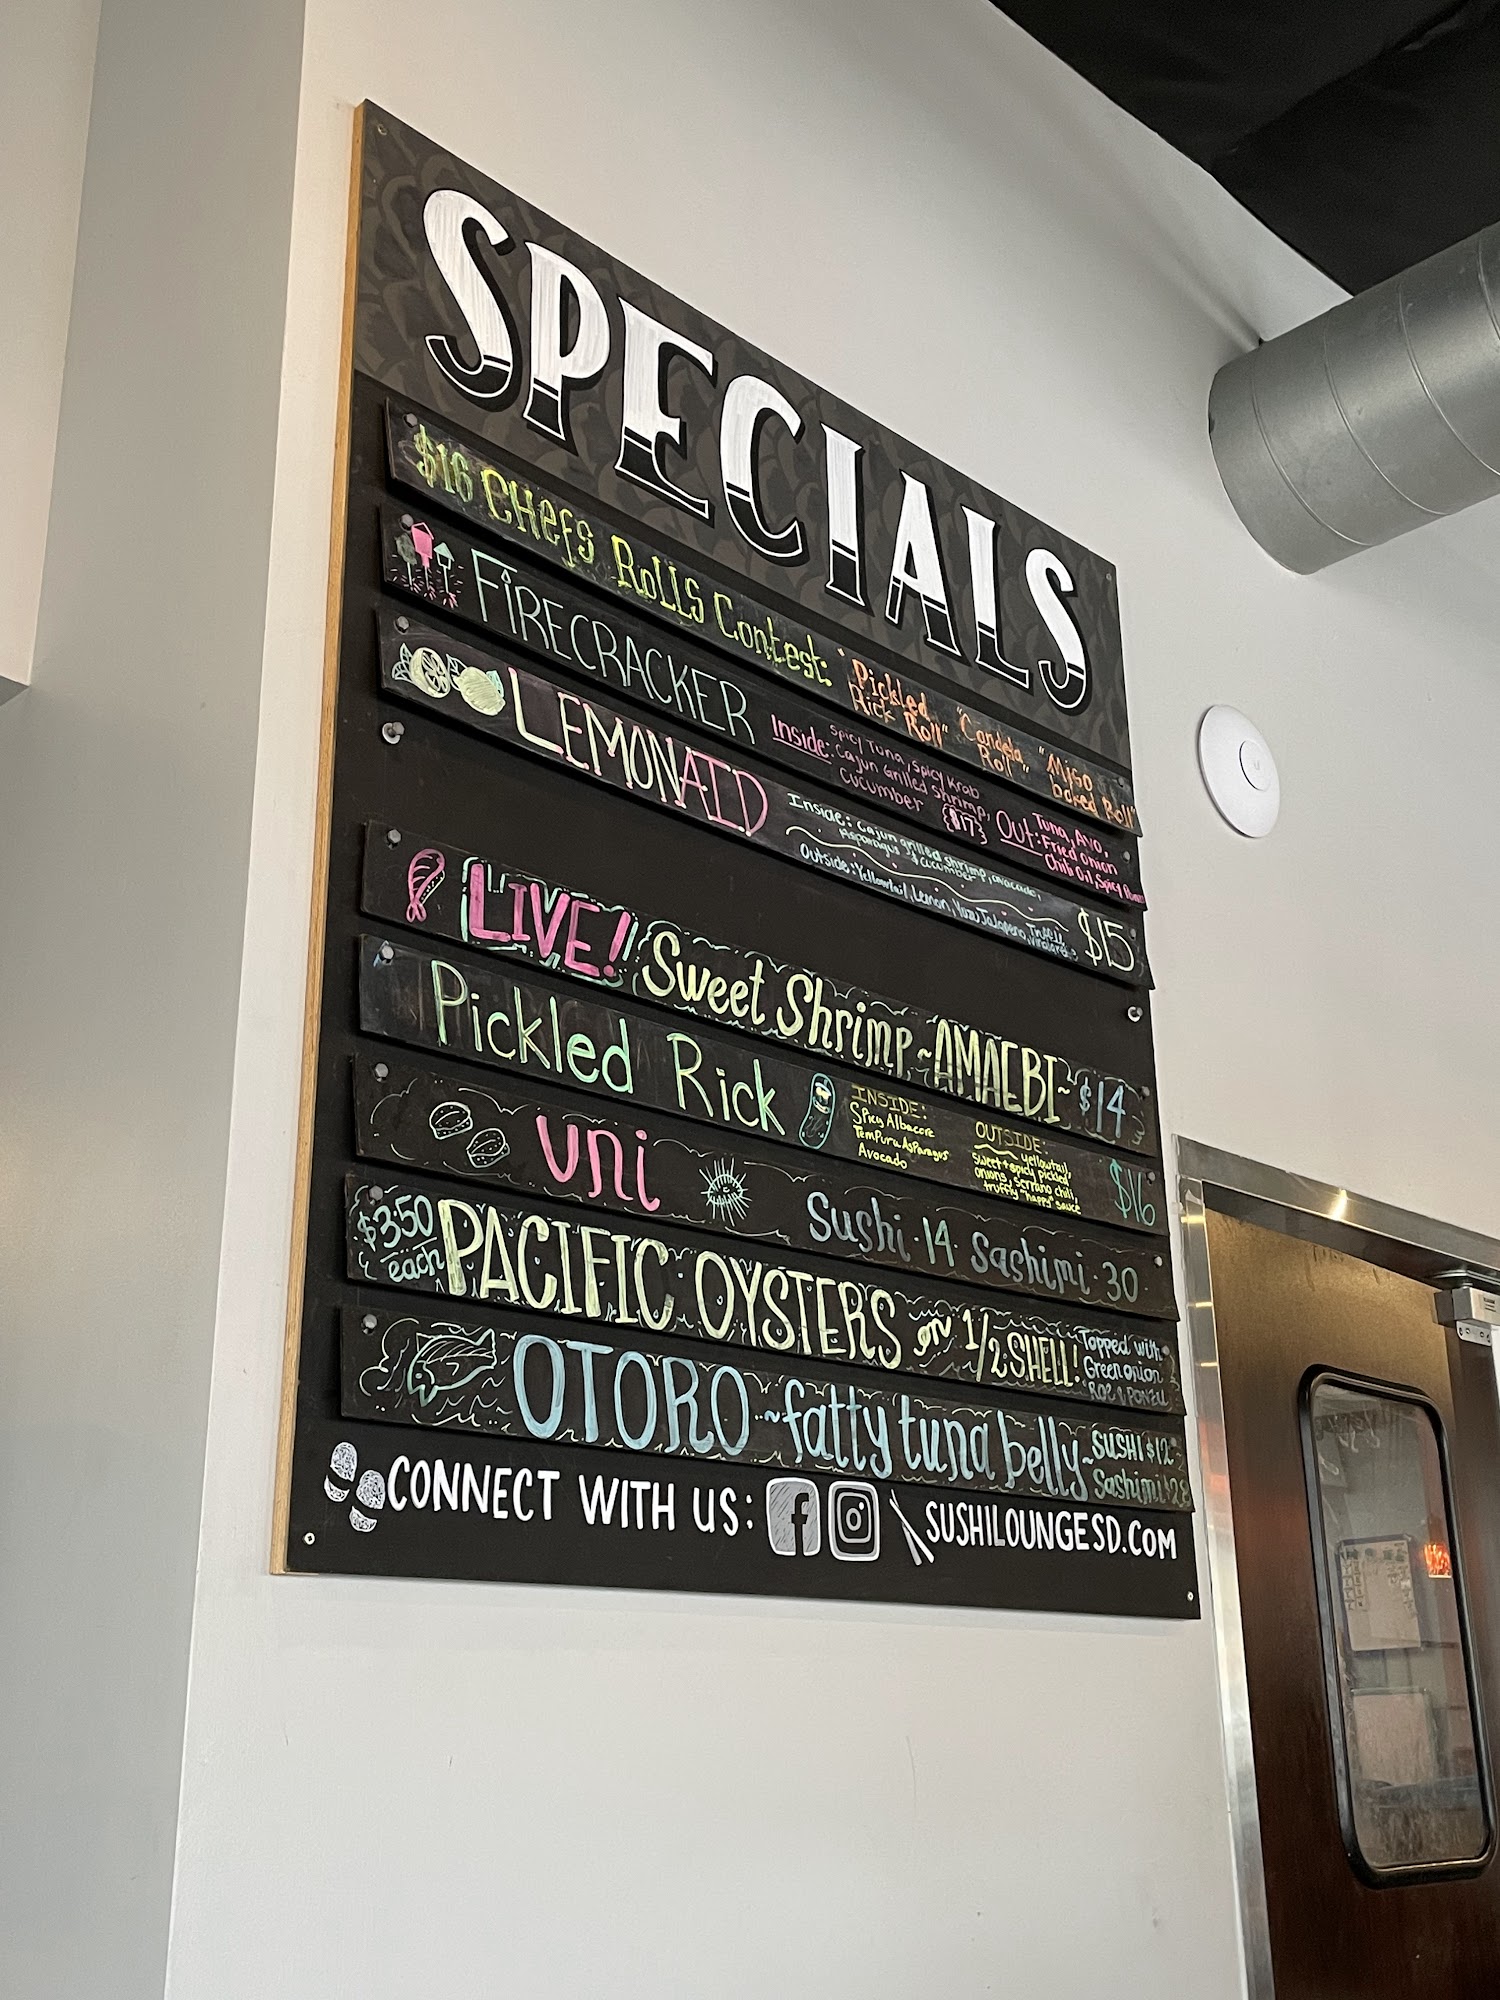 SPECIALS
$16 CHefs RoLLS Contest: "Pickled Rick Roll" "Candela Roll" "Miso baked Roll"
FIRECRACKER Inside: Spicy Tuna, Spicy Krab
Cajun Grilled Shrimp,
Cucumber {$17} Out: Tuna, Avo,
Fried Onion
Chili Oil, Spicy
LEMONAID Inside: Cajun grilled shrimp, avocado,
Asparagus & cucumber
Outside: Yellowtail, Lemon, Yuzu Jalapeno, Truffle Vinaigrette $15
LIVE! Sweet Shrimp ~AMAEBI~ $14
Pickled Rick
INSIDE:
Spicy Albacore
Tempura Asparagus
Avocado
OUTSIDE:
yellowtail,
sweet + spicy pickled
onions, serrano chili,
truffley "happy" sauce
$16
uni Sushi · 14 · Sashimi · 30
$3.50 each PACIFIC OYSTERS on 1/2 SHELL! Topped with
Green onion
Roe & Ponzu
OTORO ~fatty tuna belly~ SUSHI $12
Sashimi $28
CONNECT WITH US: f SUSHILOUNGESD.COM